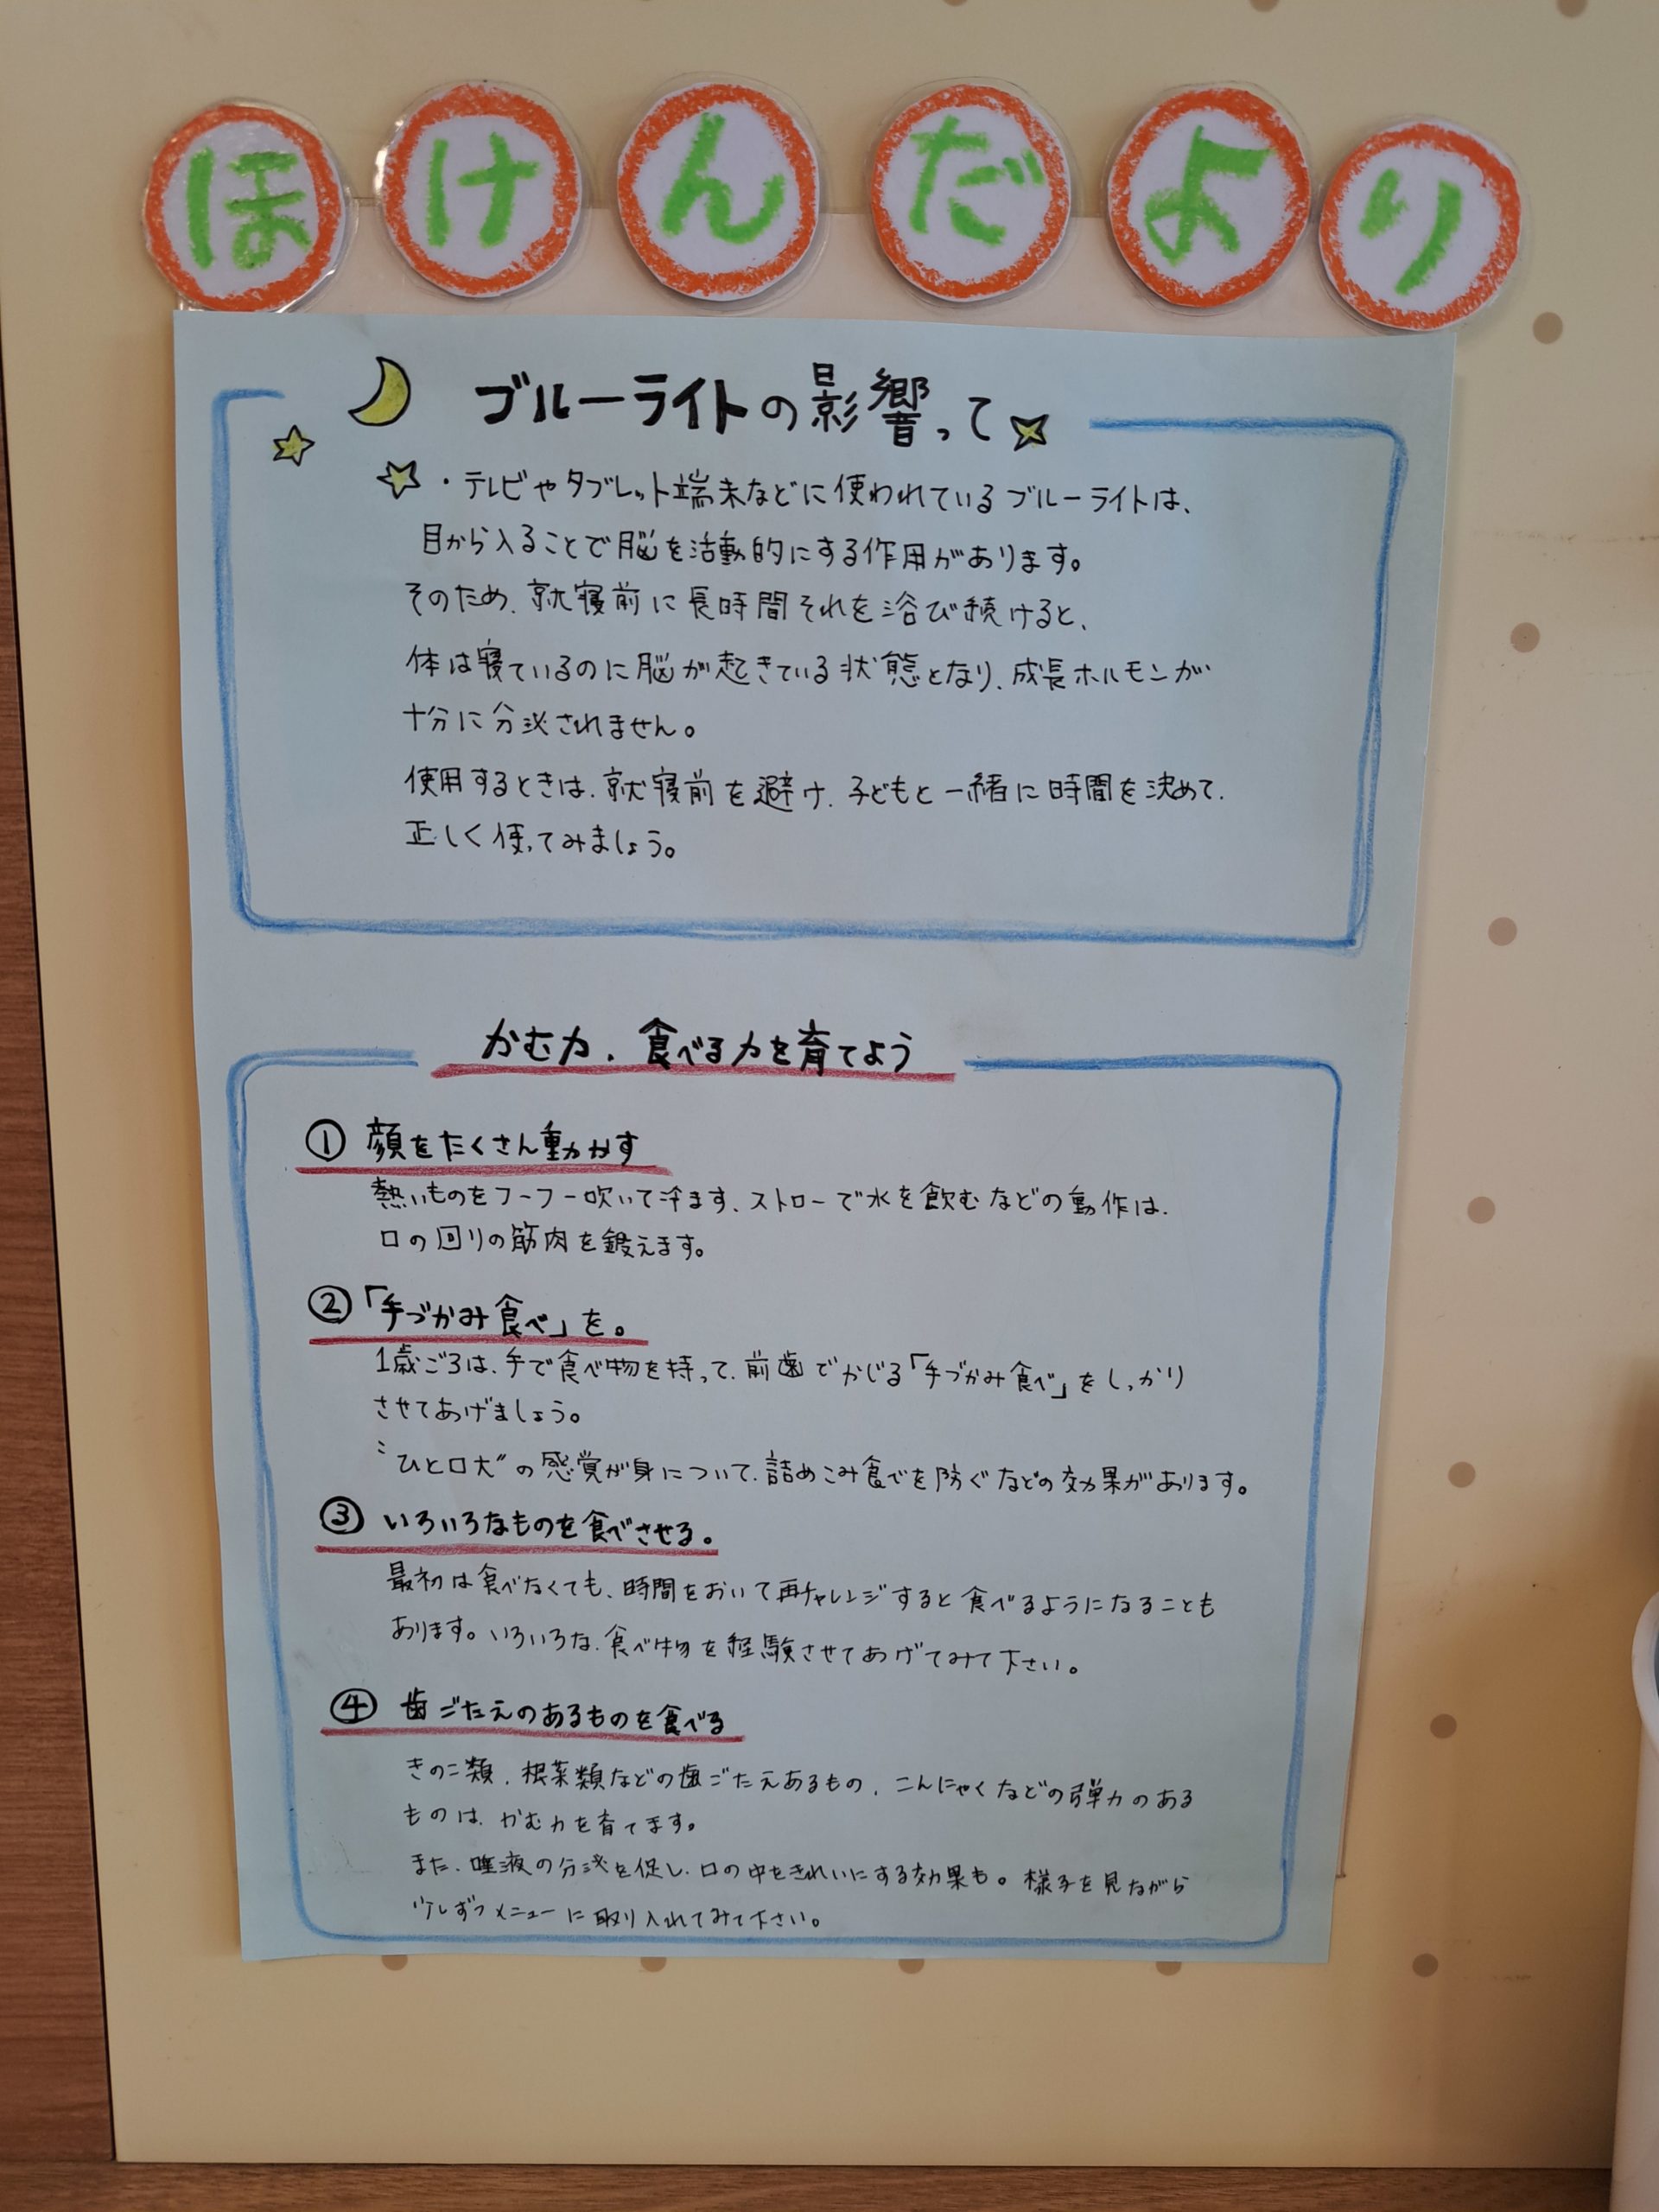 ほけんだより
ブルーライトの影響って
・テレビやタブレット端末などに使われているブルーライトは、
目から入ることで脳を活動的にする作用があります。
そのため、就寝前に長時間それを浴び続けると、
体は寝ているのに脳が起きている状態となり、成長ホルモンが
十分に分泌されません。
使用するときは、就寝前を避け、子どもと一緒に時間を決めて、
正しく使ってみましょう。
かむ力、食べる力を育てよう
① 顔をたくさん動かす
熱いものをフーフー吹いて冷ます、ストローで水を飲むなどの動作は、
口の回りの筋肉を鍛えます。
②「手づかみ食べ」を。
1歳ごろは、手で食べ物を持って、前歯でかじる「手づかみ食べ」をしっかり
させてあげましょう。
〝ひと口大〟の感覚が身について、詰めこみ食べを防ぐなどの効果があります。
③ いろいろなものを食べさせる。
最初は食べなくても、時間をおいて再チャレンジすると食べるようになることも
あります。いろいろな、食べ物を経験させてあげてみて下さい。
④ 歯ごたえのあるものを食べる
きのこ類、根菜類などの歯ごたえあるもの、こんにゃくなどの弾力のある
ものは、かむ力を育てます。
また、唾液の分泌を促し、口の中をきれいにする効果も。様子を見ながら
少しずつメニューに取り入れてみて下さい。